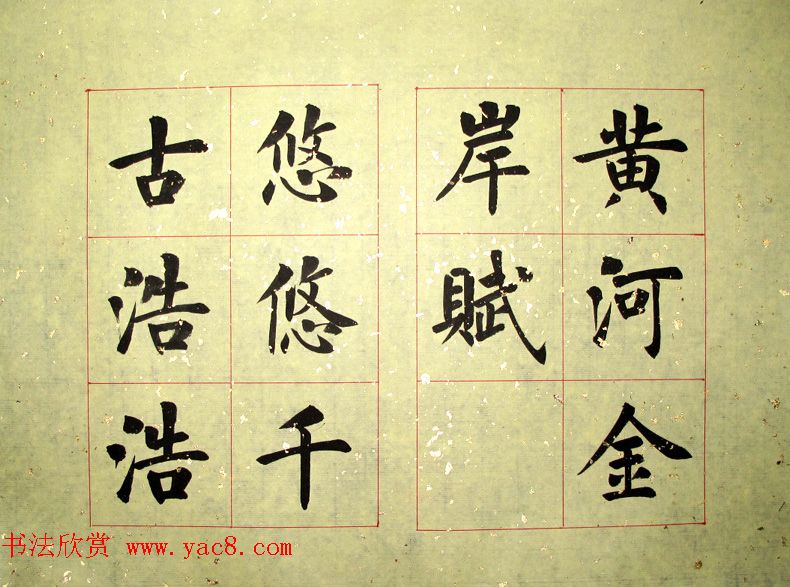 黄河金
岸賦
悠悠千
古浩浩
书法欣赏 www.yac8.com